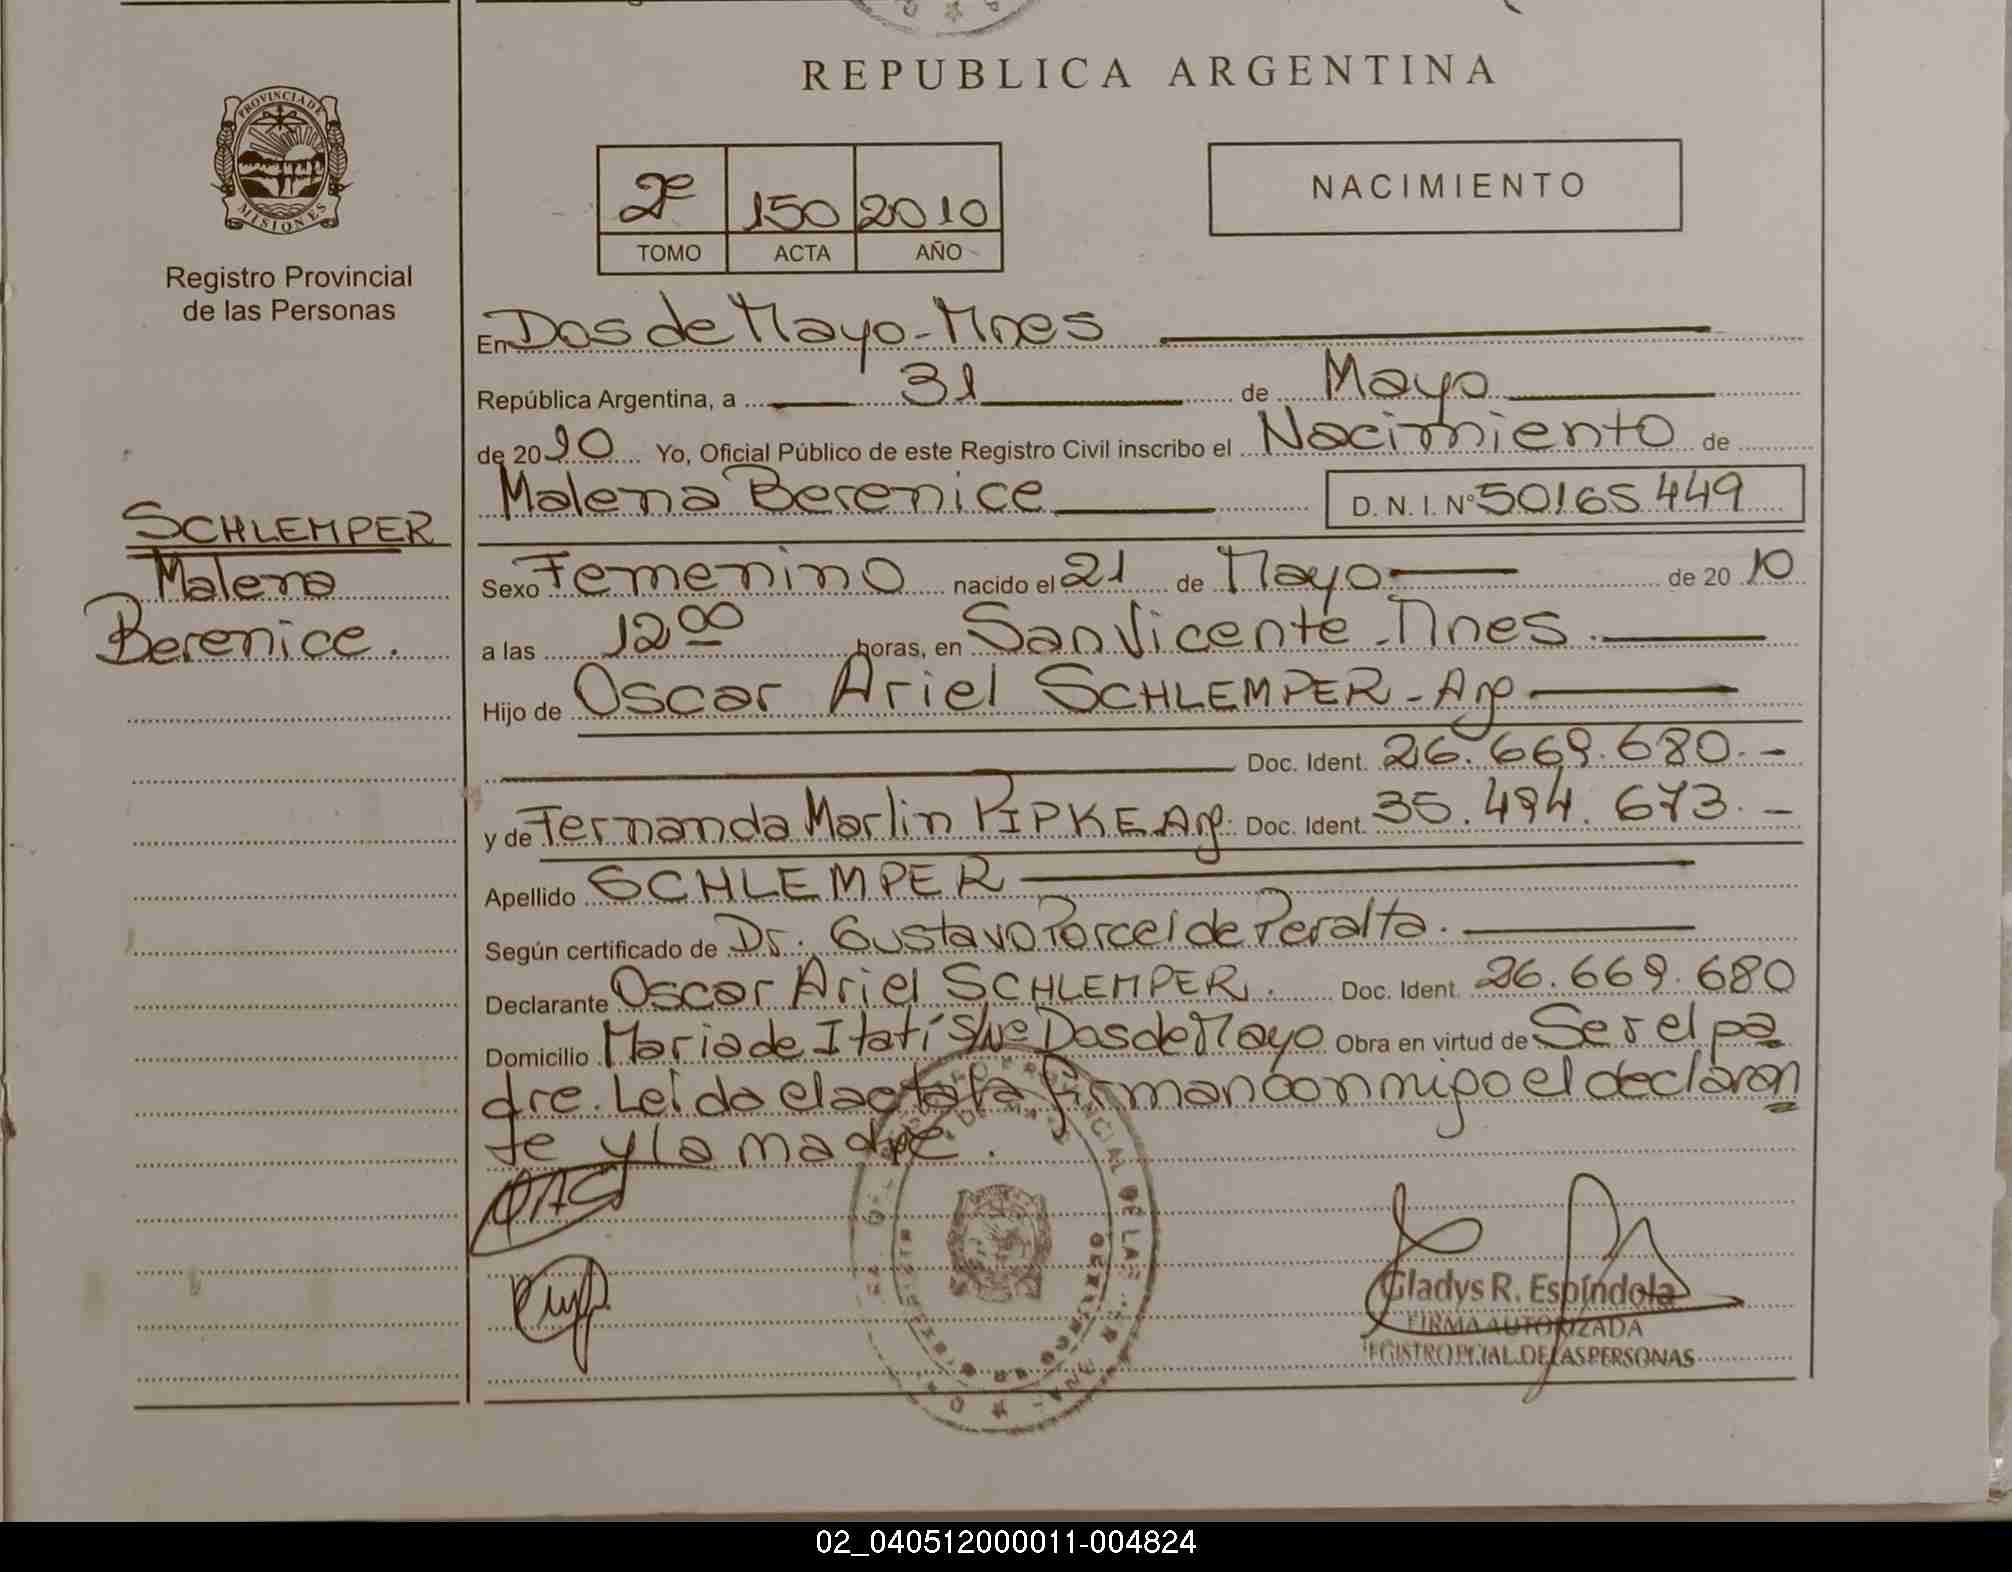 REPUBLICA ARGENTINA
PROVINCIA DE
MISIONES
Registro Provincial
de las Personas
2º 150 2010
TOMO ACTA AÑO
NACIMIENTO
SCHLEMPER
Malena
Berenice.
En Dos de Mayo - Mnes
República Argentina, a 31 de Mayo
de 2010 Yo, Oficial Público de este Registro Civil inscribo el Nacimiento de
Malena Berenice D. N. I. Nº 50165449
Sexo Femenino nacido el 21 de Mayo de 20 10
a las 12 00 horas, en San Vicente - Mnes.
Hijo de Oscar Ariel SCHLEMPER - Arg
Doc. Ident. 26.669.680.-
y de Fernanda Marlin PIPKE Arg. Doc. Ident. 35.494.673.-
Apellido SCHLEMPER
Según certificado de Dr. Gustavo Porcel de Peralta.
Declarante Oscar Ariel SCHLEMPER. Doc. Ident. 26.669.680
Domicilio Maria de Itatí S/Nº Dos de Mayo Obra en virtud de Ser el pa
dre. Leida el acta la firman conmigo el declaran
te y la madre.
OAS
Gladys R. Espíndola
FIRMA AUTORIZADA
REGISTRO PCIAL. DE LAS PERSONAS
02_040512000011-004824